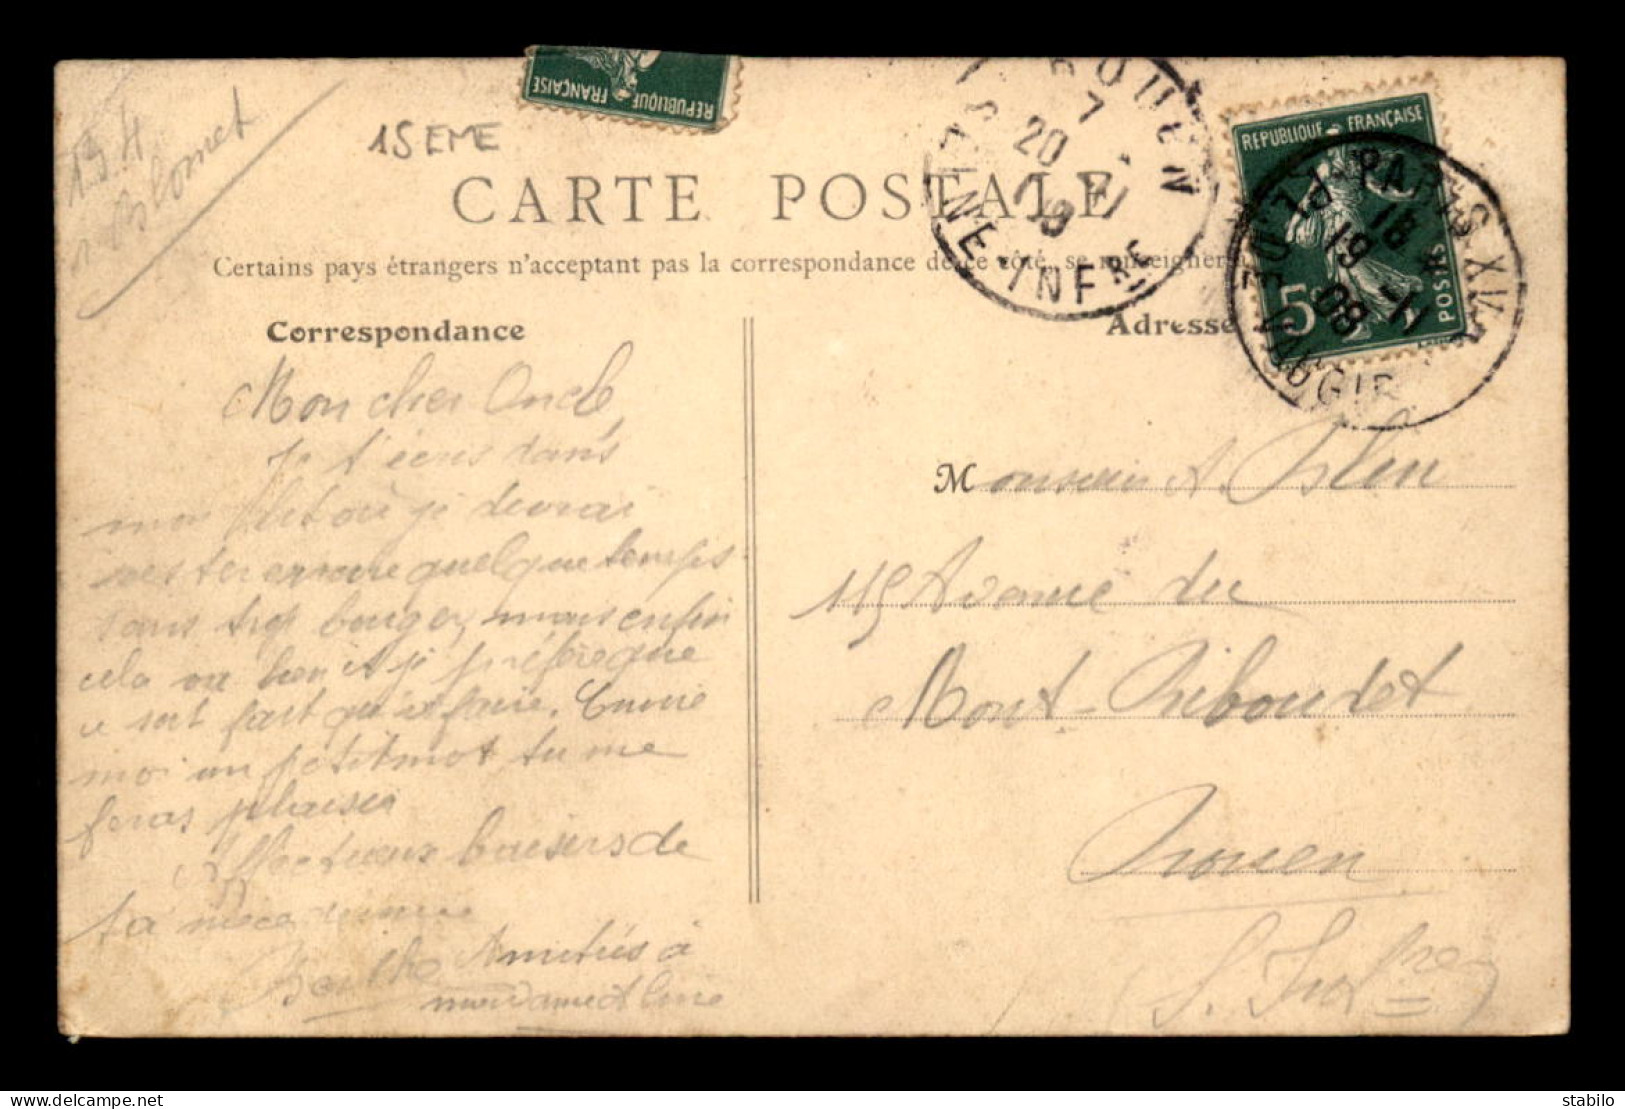 154
r. Blomet
15 EME
REPUBLIQUE FRANÇAISE
ROUEN
7
20 XI
08
SEINE-INFRE
REPUBLIQUE FRANÇAISE
5c
POSTES
PARIS XV
PL. DE VAUGIR
18
19 - 11
08
CARTE POSTALE
Certains pays étrangers n'acceptent pas la correspondance de ce côté, se renseigner
Correspondance
Adresse
Mon cher Oncle,
Je t'écris dans
mon lit où je devrai
rester encore quelque temps
sans trop bouger, mais enfin
cela va bien et je préfère que
ce soit fait qu'à faire. Envoie
moi un petit mot tu me
feras plaisir
Affectueux baisers de
ta nièce
Berthe Amitiés à
Monsieur A.
115 Avenue du
Mont-Riboudet
Rouen
S. Infre
delcampe.net
stabilo